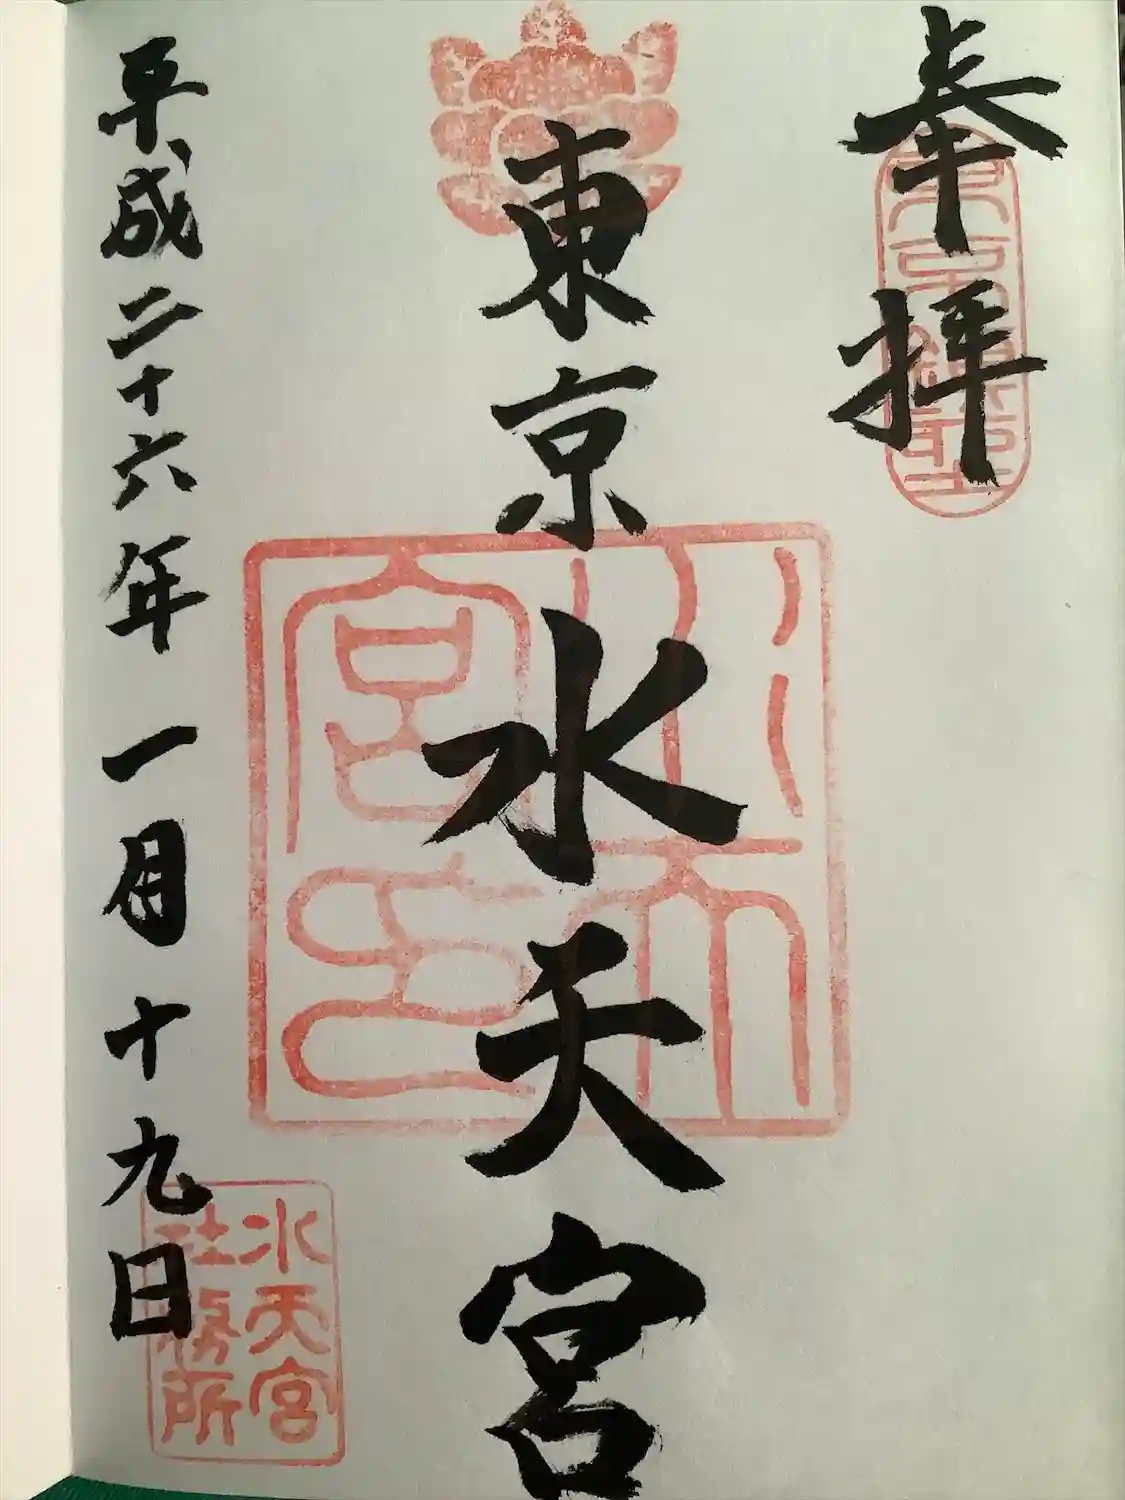 奉拝
東京水天宮
平成二十六年一月十九日
水天宮印
水天宮
社務所